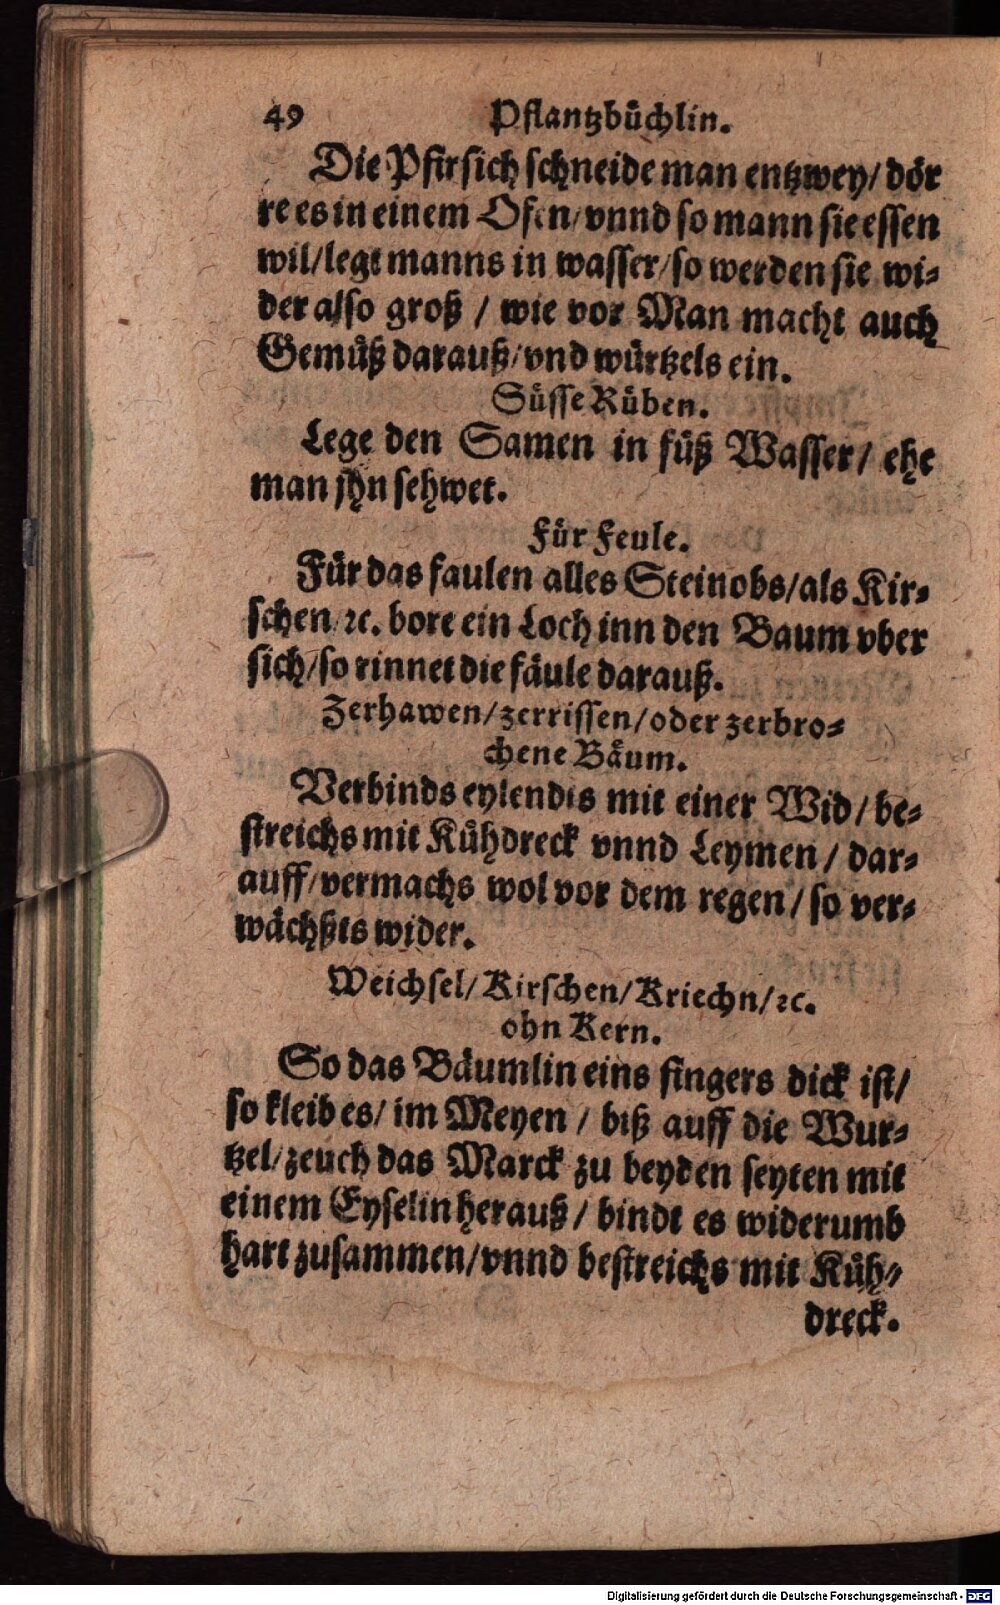 49 Pflantzbüchlin.
Die Pfirsich schneide man entzwey/ dör
re es in einem Ofen/ vnnd so mann sie essen
wil/ legt manns in wasser/ so werden sie wi-
der also groß / wie vor Man macht auch
Gemüß darauß/ vnd würtzels ein.
Süsse Rüben.
Lege den Samen in füß Wasser/ ehe
man jhn sehwet.
Für Feule.
Für das faulen alles Steinobs/ als Kir-
schen/ ꝛc. bore ein Loch inn den Baum vber
sich/ so rinnet die fäule darauß.
Zerhawen/ zerrissen/ oder zerbro-
chene Bäum.
Verbinds eylendts mit einer Wid/ be-
streichs mit Kühdreck vnnd Leymen/ dar-
auff/ vermachs wol vor dem regen/ so ver-
wächßts wider.
Weichsel/ Kirschen/ Kriechn/ ꝛc.
ohn Kern.
So das Bäumlin eins fingers dick ist/
so kleib es/ im Meyen / biß auff die Wur-
tzel/ zeuch das Marck zu beyden seyten mit
einem Eyselin herauß/ bindt es widerumb
hart zusammen/ vnnd bestreichs mit Küh-
dreck.
Digitalisierung gefördert durch die Deutsche Forschungsgemeinschaft - DFG